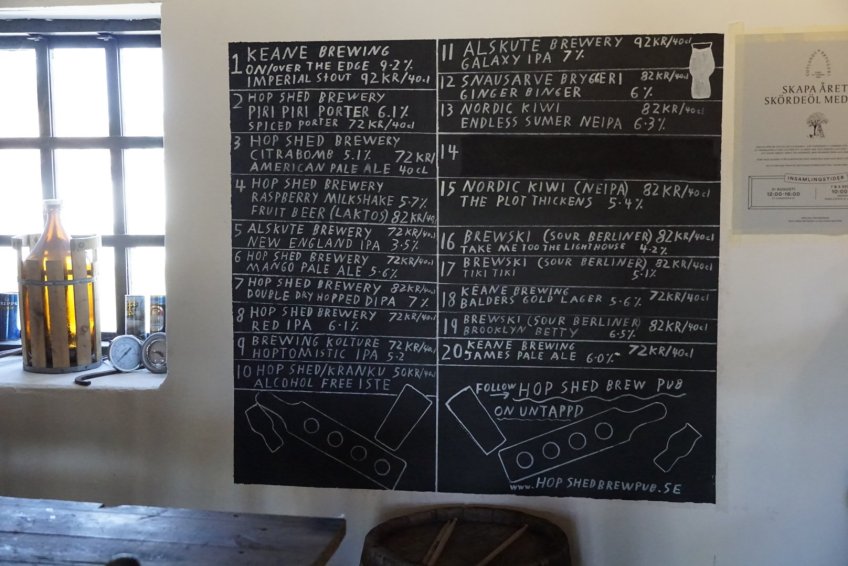 1 KEANE BREWING
ON/OVER THE EDGE 9.2%
IMPERIAL STOUT 92KR/40cl
2 HOP SHED BREWERY
PIRI PIRI PORTER 6.1%
SPICED PORTER 72KR/40cl
3 HOP SHED BREWERY
CITRABOMB 5.1% 72KR/
AMERICAN PALE ALE 40cl
4 HOP SHED BREWERY
RASPBERRY MILKSHAKE 5.7%
FRUIT BEER (LAKTOS) 82KR/40cl
5 ALSKUTE BREWERY 72KR/40cl
NEW ENGLAND IPA 3.5%
6 HOP SHED BREWERY 72KR/40cl
MANGO PALE ALE 5.6%
7 HOP SHED BREWERY 82KR/40cl
DOUBLE DRY HOPPED DIPA 7%
8 HOP SHED BREWERY 72KR/40cl
RED IPA 6.1%
9 BREWING KOLTURE 72KR/40cl
HOPTOMISTIC IPA 5.2
10 HOP SHED/KRANKU 50KR/40cl
ALCOHOL FREE ISTE
11 ALSKUTE BREWERY 92KR/40cl
GALAXY IPA 7%
12 SNAUSARVE BRYGGERI 82KR/40cl
GINGER BINGER 6%
13 NORDIC KIWI 82KR/40cl
ENDLESS SUMER NEIPA 6.3%
14
15 NORDIC KIWI (NEIPA) 82KR/40cl
THE PLOT THICKENS 5.4%
16 BREWSKI (SOUR BERLINER) 82KR/40cl
TAKE ME TOO THE LIGHTHOUSE 4.2%
17 BREWSKI (SOUR BERLINER) 82KR/40cl
TIKI TIKI 5.1%
18 KEANE BREWING 72KR/40cl
BALDERS GOLD LAGER 5.6%
19 BREWSKI (SOUR BERLINER) 82KR/40cl
BROOKLYN BETTY 6.5%
20 KEANE BREWING 72KR/40cl
JAMES PALE ALE 6.0%
FOLLOW HOP SHED BREW PUB
ON UNTAPPD
WWW.HOPSHEDBREWPUB.SE
SKAPA ÅRET
SKÖRDEÖL MED
INSAMLINGSTIDER
12:00-16:00
10:00